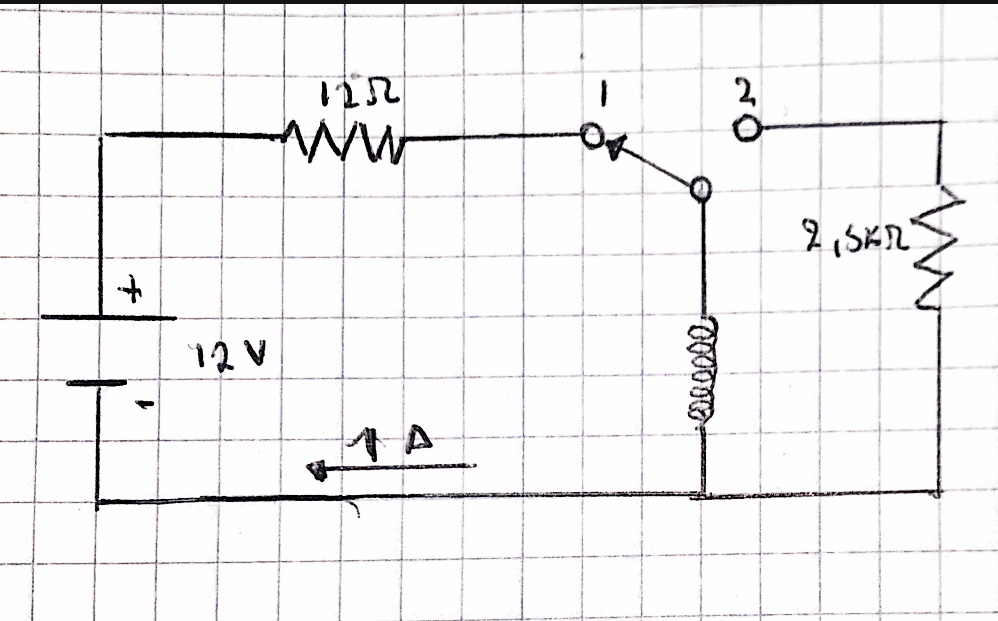 12Ω
1
2
2,5kΩ
+
12V
-
1 A